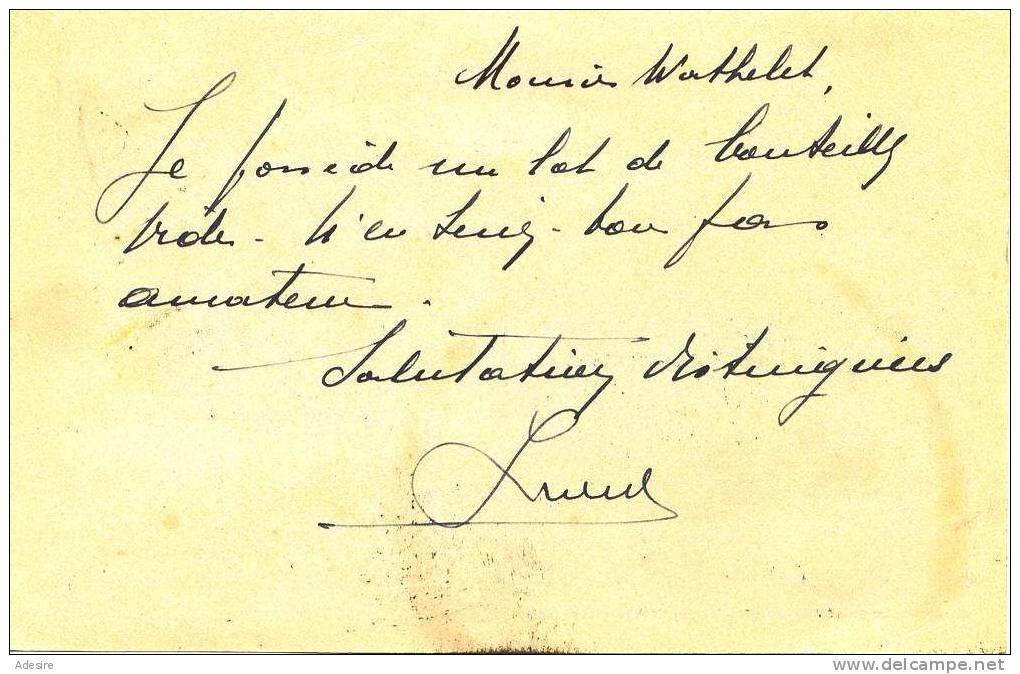 Monsieur Wathelet,
Je possède un lot de bouteilles
vides. N'en seriez-vous pas
amateur.
Salutations distinguées
Adesire
www.delcampe.net